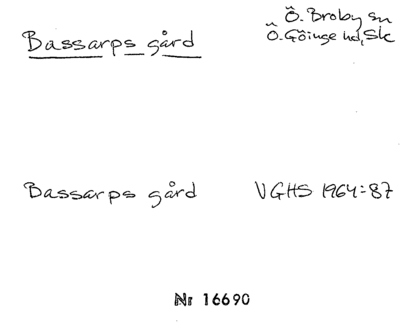 Bassarps gård
Ö. Broby sn
Ö. Göinge hd, Sk
Bassarps gård VGHS 1964:87
Nr 16690